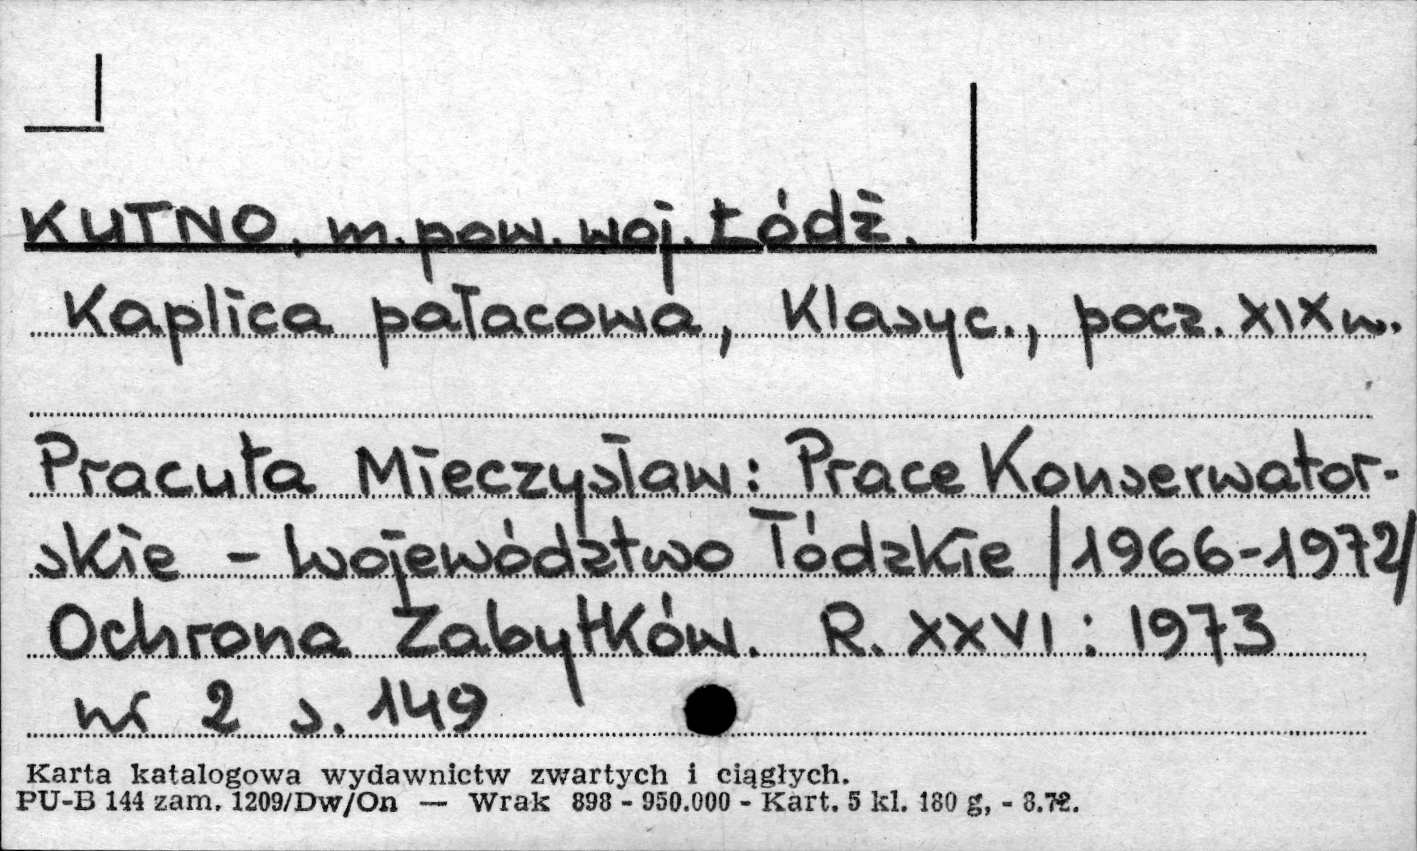 KUTNO, m. pow. woj. Łódź.
Kaplica pałacowa, Klasyc., pocz. XIX w.
Pracuta Mieczysław: Prace Konserwator-
skie - województwo łódzkie /1966-1972/
Ochrona Zabytków. R. XXVI : 1973
nr 2 s. 149
Karta katalogowa wydawnictw zwartych i ciągłych.
PU-B 144 zam. 1209/Dw/On — Wrak 898 - 950.000 - Kart. 5 kl. 180 g, - 8.72.